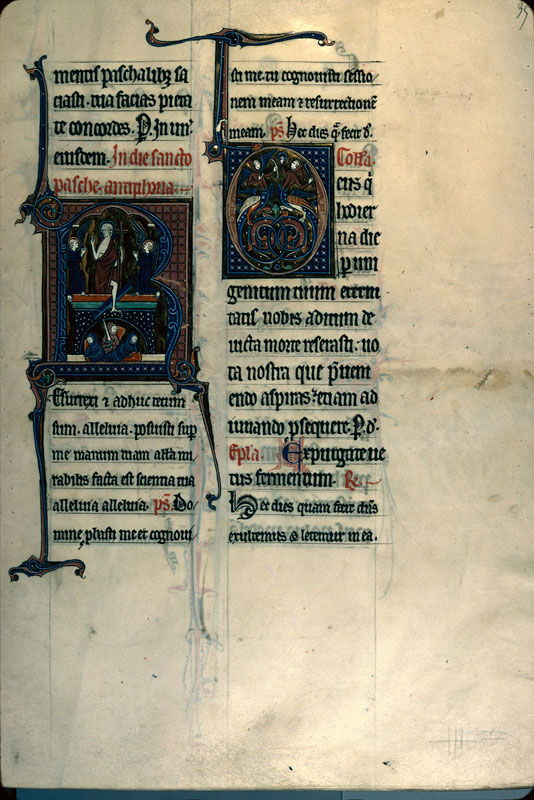 35
mentis paschalib; sa
ciasti. tua facias pieta
te concordes. P. in uni.
eiusdem. In die sancto
pasche. antiphona.
R
Esurrexi ⁊ adhuc tecum
sum. alleluia. posuisti sup
me manum tuam alla mi
rabilis facta est scientia tua
alleluia alleluia. ps. Do
mine pbasti me et cognoui
sti me. tu cognouisti sessio
nem meam ⁊ resurrectionē
meam. ps. hec dies q̄ fecit d.
D Coll'a.
eus q̄
hodier
na die
p uni
genitum tuum eterni
tatis nobis aditum de
uicta morte reserasti. uo
ta nostra que p̄ueni
endo aspiras. etiam ad
iuuando psequere. P. d.
Epl'a. Expurgate ue
tus fermentum.
Hec dies quam fecit dn̄s
exultemus et letemur in ea.